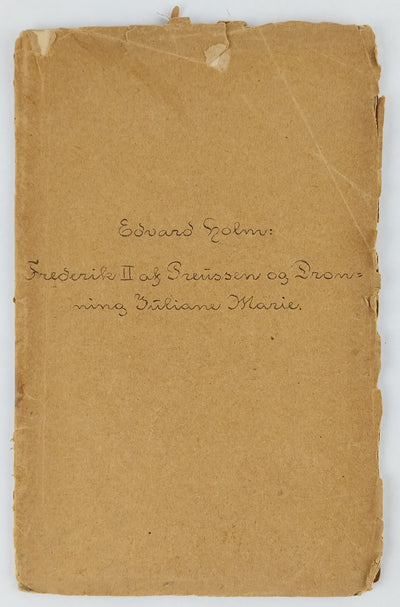 Edvard Holm:
Frederik II af Preussen og Dron=
ning Juliane Marie.